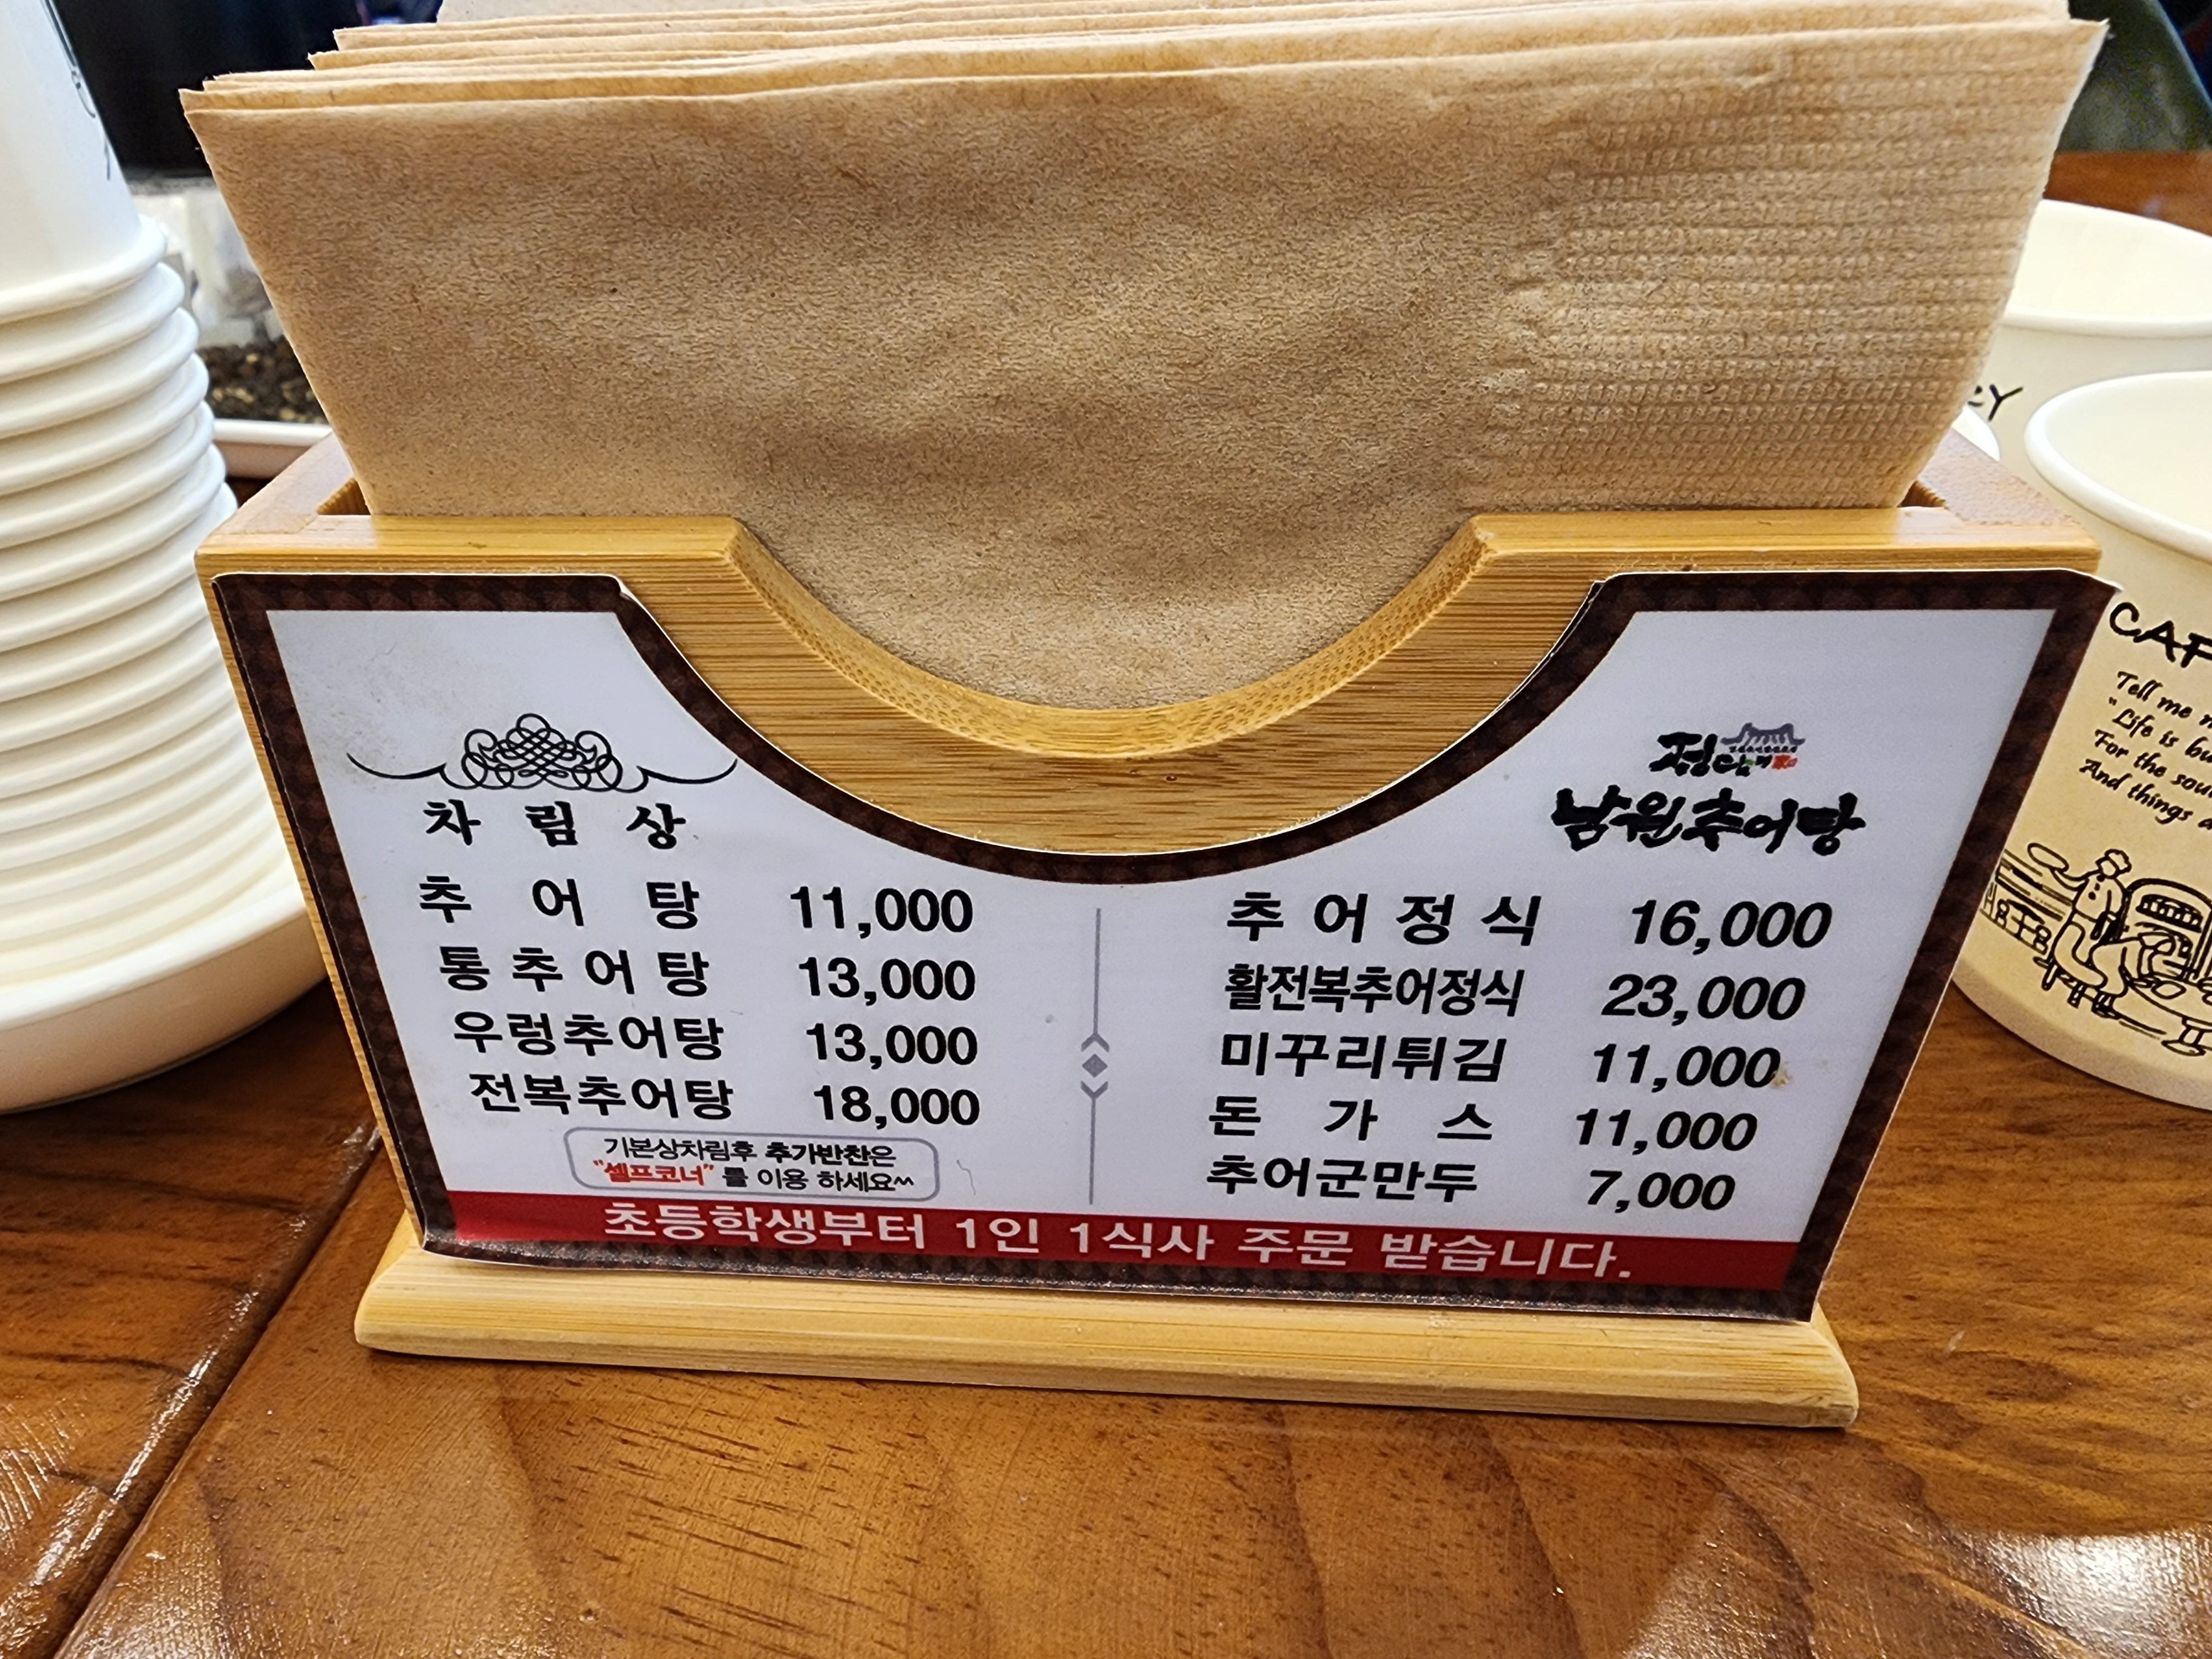 차림상
추어탕 11,000
통추어탕 13,000
우렁추어탕 13,000
전복추어탕 18,000
기본상차림후 추가반찬은
"셀프코너"를 이용 하세요^^
남원추어탕
추어정식 16,000
활전복추어정식 23,000
미꾸리튀김 11,000
돈가스 11,000
추어군만두 7,000
초등학생부터 1인 1식사 주문 받습니다.
Tell me
"Life is
For the
And things